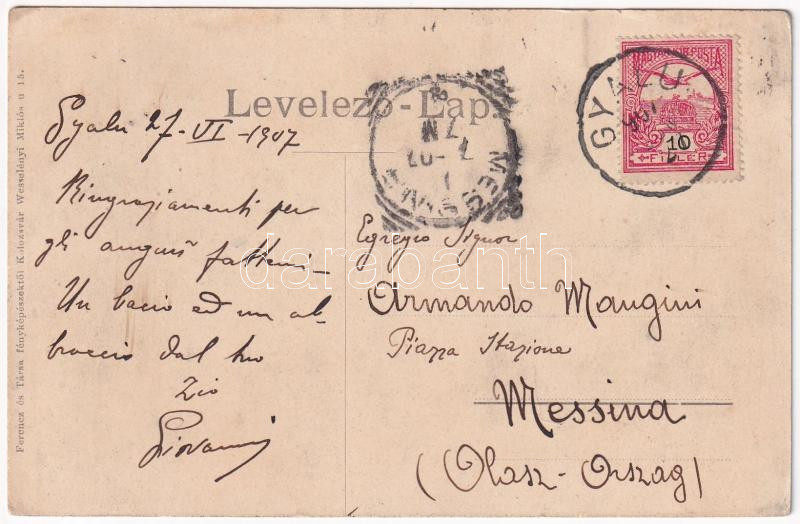 Levelező-Lap.
Gyalu 27-VI-1907
Ringraziamenti per
gli auguri fattemi-
Un bacio ed un ab-
braccio dal tuo
Zio
Giovanni
Egregio Signor
Armando Mangini
Piazza Stazione
Messina
(Olasz-Orszag)
MAGYAR KIR. POSTA
10
FILLÉR
GYALU
Ferencz és Társa fényképészektől Kolozsvár Wesselényi Miklós u 15.
darabanth